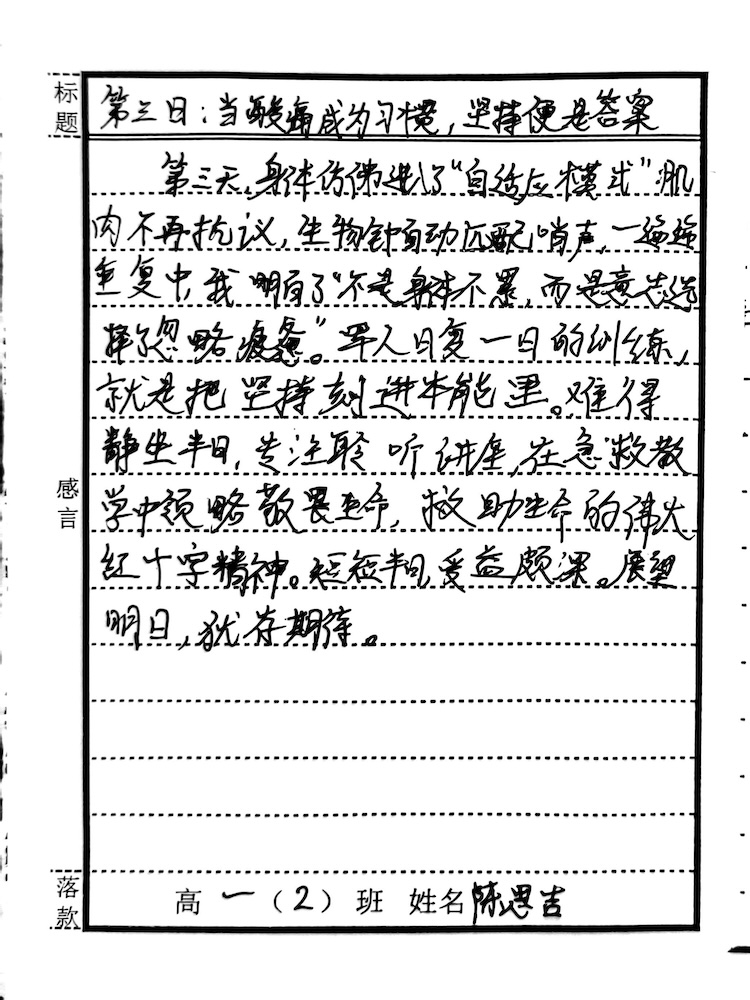 标题
第三日：当酸痛成为习惯，坚持便是答案
第三天，身体仿佛进入了“自适应模式”：肌
肉不再抗议，生物钟自动匹配哨声，一遍遍
重复中，我明白了“不是身体不累，而是意志选
择了忽略疲惫”。军人日复一日的训练，
就是把坚持刻进本能里。难得
静坐半日，专注聆听讲座，在急救教
学中领略敬畏生命，救助生命的伟大
红十字精神。短短半日，受益颇深。展望
明日，犹存期待。
感言
落款
高一（2）班 姓名陈思吉